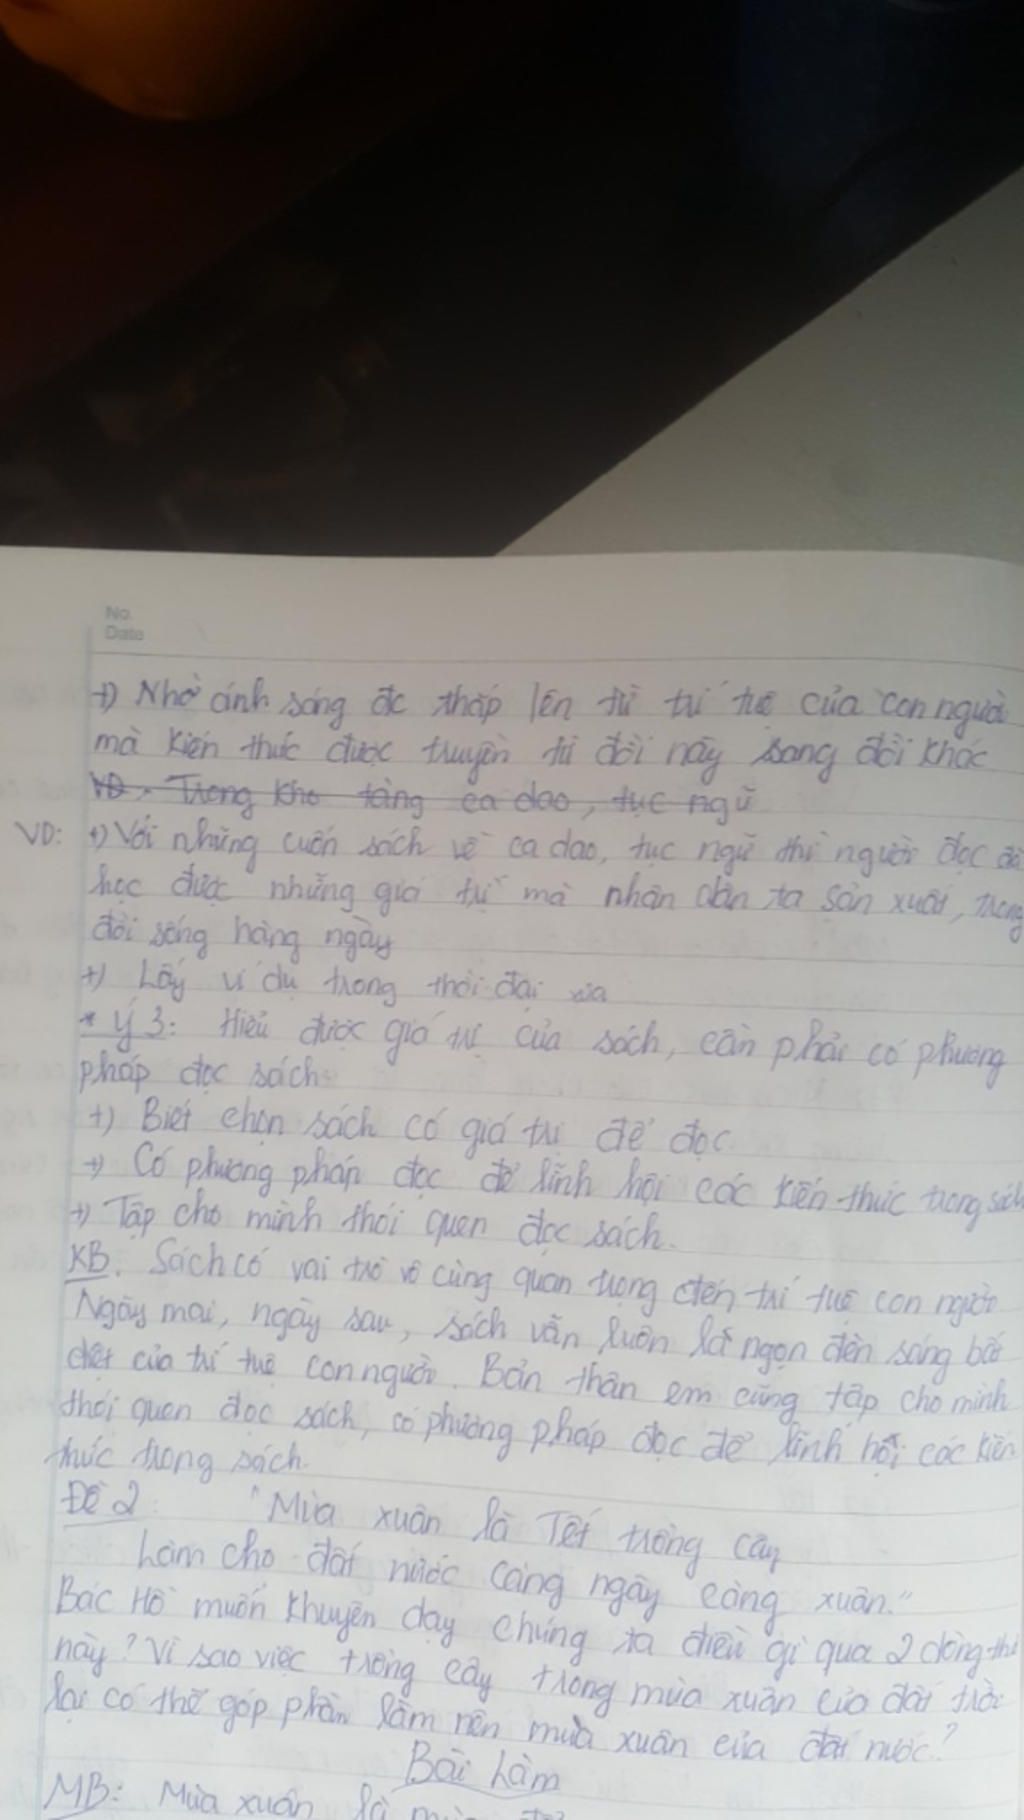 No.
Date
+) Nhờ ánh sáng đc thắp lên từ trí tuệ của con người
mà kiến thức được truyền từ đời này sang đời khác
VD: Trong kho tàng ca dao, tục ngữ
VD: +) Với những cuốn sách về ca dao, tục ngữ thì người đọc đã
học được những giá trị mà nhân dân ta sản xuất, trong
đời sống hàng ngày
+) Lấy ví dụ trong thời đại xưa
* Ý 3: Hiểu được giá trị của sách, cần phải có phương
pháp đọc sách
+) Biết chọn sách có giá trị để đọc.
+) Có phương pháp đọc để lĩnh hội các kiến thức trong sách
+) Tập cho mình thói quen đọc sách.
KB: Sách có vai trò vô cùng quan trọng đến trí tuệ con người
Ngày mai, ngày sau, sách vẫn luôn là ngọn đèn sáng bất
diệt của trí tuệ con người. Bản thân em cũng tập cho mình
thói quen đọc sách, có phương pháp đọc để lĩnh hội các kiến
thức trong sách.
Đề 2: "Mùa xuân là Tết trồng cây
Làm cho đất nước càng ngày càng xuân."
Bác Hồ muốn khuyên dạy chúng ta điều gì qua 2 dòng thơ
này? Vì sao việc trồng cây trong mùa xuân của đất trời
lại có thể góp phần làm nên mùa xuân của đất nước?
Bài Làm
MB: Mùa xuân là